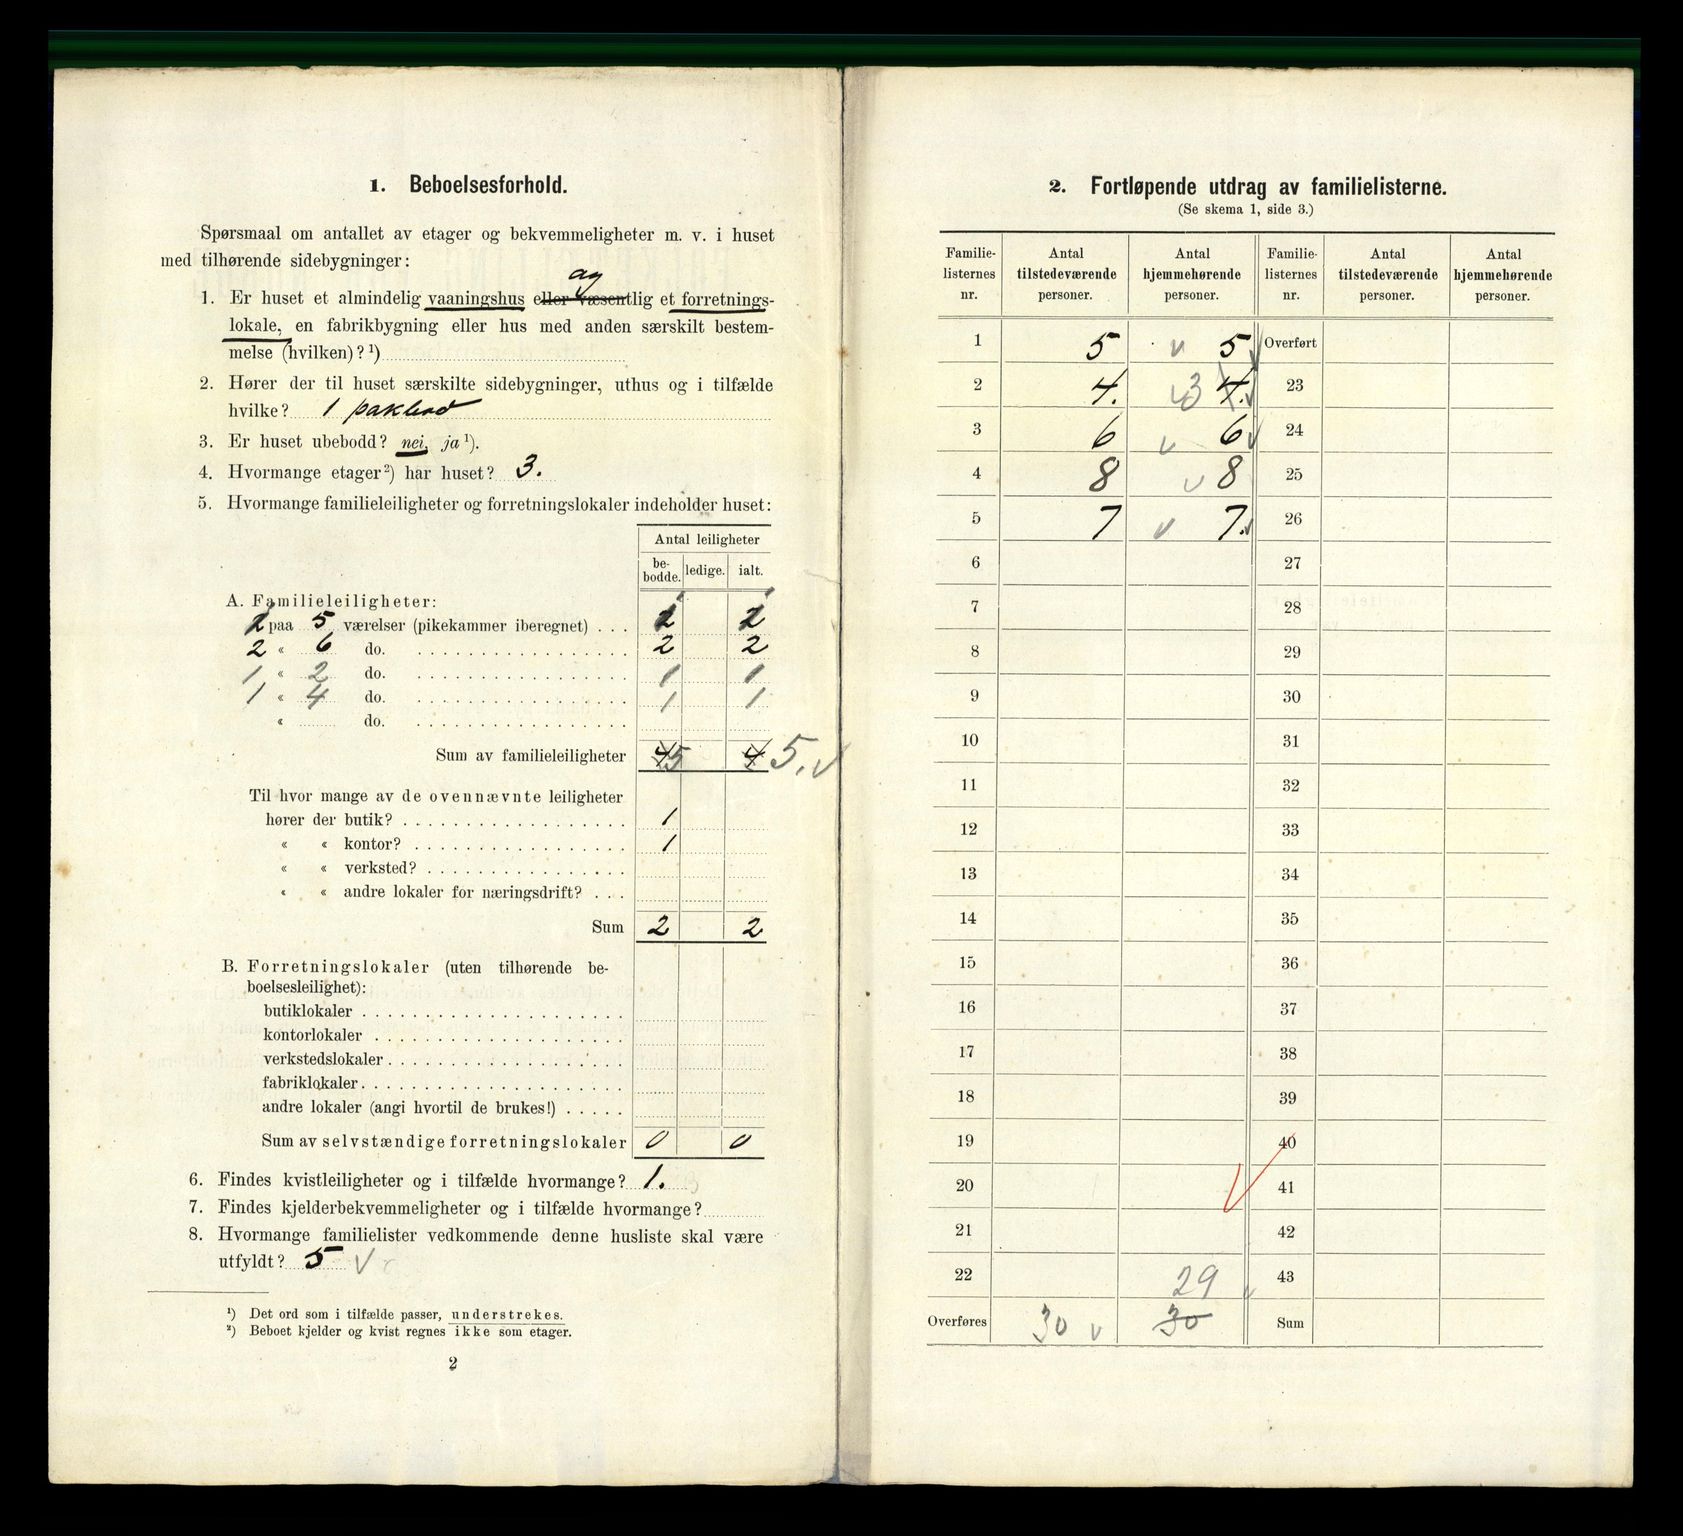 1. Beboelsesforhold.
Spørsmaal om antallet av etager og bekvemmeligheter m. v. i huset
med tilhørende sidebygninger:
og
1. Er huset et almindelig vaaningshus eller væsentlig et forretnings-
lokale, en fabrikbygning eller hus med anden særskilt bestem-
melse (hvilken)? ¹)
2. Hører der til huset særskilte sidebygninger, uthus og i tilfælde
hvilke? 1 pakbod
3. Er huset ubebodd? nei, ja ¹).
4. Hvormange etager ²) har huset? 3.
5. Hvormange familieleiligheter og forretningslokaler indeholder huset:
Antal leiligheter
be-
bodde. ledige. ialt.
A. Familieleiligheter:
paa 5 værelser (pikekammer iberegnet) . . .
2 « 6 do. 2 2
1 « 2 do. 1 1
1 « 4 do. 1 1
« do.
Sum av familieleiligheter 4 5 4 5. v
Til hvor mange av de ovennævnte leiligheter
hører der butik? 1
« « kontor? 1
« « verksted?
« « andre lokaler for næringsdrift? . . .
Sum 2 2
B. Forretningslokaler (uten tilhørende be-
boelsesleilighet):
butiklokaler
kontorlokaler
verkstedslokaler
fabriklokaler
andre lokaler (angi hvortil de brukes!)
Sum av selvstændige forretningslokaler 0 0
6. Findes kvistleiligheter og i tilfælde hvormange? 1.
7. Findes kjelderbekvemmeligheter og i tilfælde hvormange?
8. Hvormange familielister vedkommende denne husliste skal være
utfyldt? 5 v
¹) Det ord som i tilfælde passer, understrekes.
²) Beboet kjelder og kvist regnes ikke som etager.
2
2. Fortløpende utdrag av familielisterne.
(Se skema 1, side 3.)
Familie-
listernes
nr.
Antal
tilstedeværende
personer.
Antal
hjemmehørende
personer.
Familie-
listernes
nr.
Antal
tilstedeværende
personer.
Antal
hjemmehørende
personer.
1 5 v 5 v Overført
2 4. v 3 4. v 23
3 6 v 6 v 24
4 8 v 8 25
5 7 v 7. v 26
6 27
7 28
8 29
9 30
10 31
11 32
12 33
13 34
14 35
15 36
16 37
17 38
18 39
19 40
20 41
21 42
22 29 v 43
Overføres 30 v 30 Sum